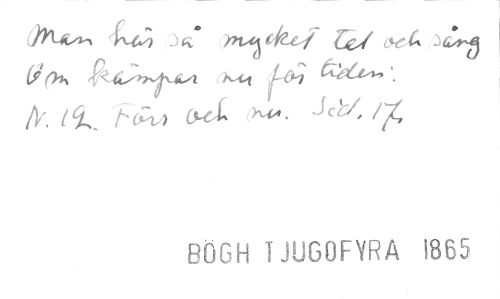 Man hör så mycket tal och sång
Om kämpar nu för tiden:
N. 12. Förr och nu. Sid. 17.
BÖGH TJUGOFYRA 1865